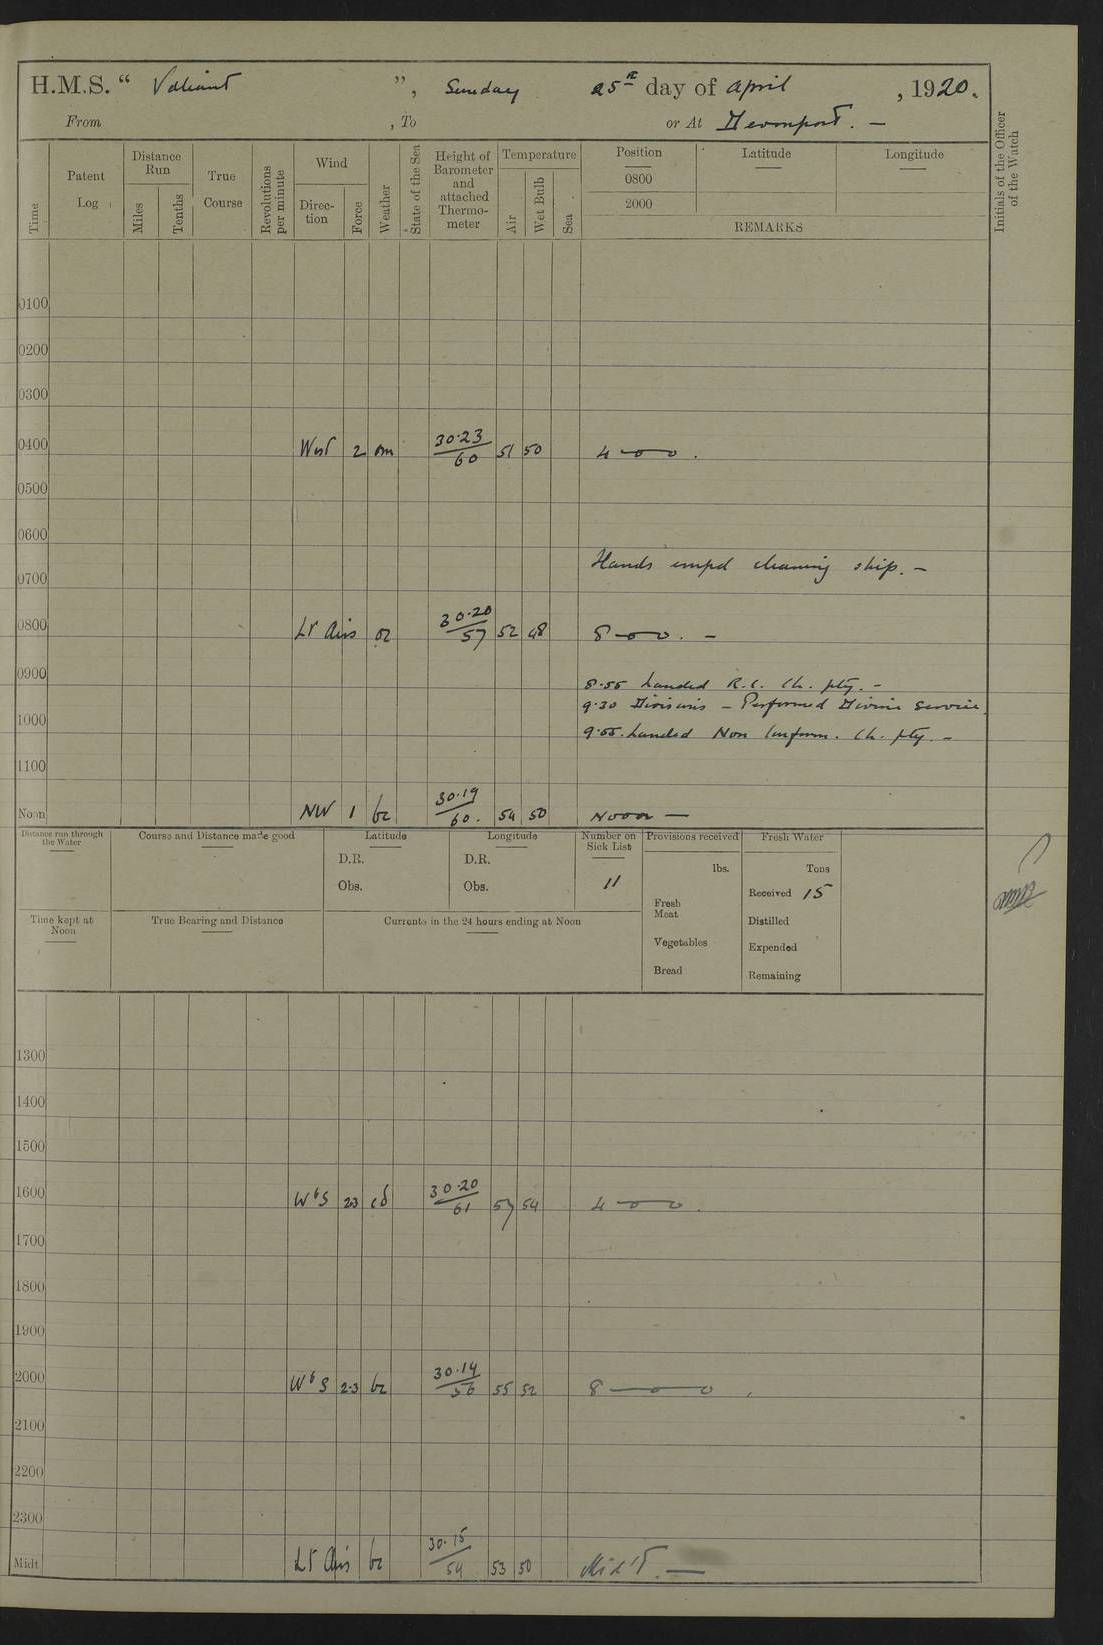 H.M.S. “ Valiant ”, Sunday 25th day of April , 1920.
From , To or At Devonport. —
Time
Patent Log
Distance Run
Miles
Tenths
True Course
Revolutions per minute
Wind
Direction
Force
Weather
State of the Sea
Height of Barometer and attached Thermometer
Temperature
Air
Wet Bulb
Sea
Position
0800
2000
Latitude
Longitude
REMARKS
Initials of the Officer of the Watch
0100
0200
0300
0400 West 2 om 30.23/60 51 50 4—o—o.
0500
0600
Hands empd cleaning ship. —
0700
0800 Lt Airs oz 30.20/57 52 48 8—o—o. —
0900 8.55 Landed R.C. Ch. pty. —
9.30 Divisions — Performed Divine Service.
1000 9.55. Landed Non Conform. Ch. pty. —
1100
Noon NW 1 bc 30.19/60. 54 50 Noon —
Distance run through the Water
Course and Distance made good
Latitude
D.R.
Obs.
Longitude
D.R.
Obs.
Number on Sick List
11
Provisions received
lbs.
Fresh Meat
Vegetables
Bread
Fresh Water
Tons
Received 15
Distilled
Expended
Remaining
Time kept at Noon
True Bearing and Distance
Currents in the 24 hours ending at Noon
1300
1400
1500
1600 WbS 2.3 cd 30.20/61 57 54 4—o—o.
1700
1800
1900
2000 WbS 2.3 bc 30.14/56 55 52 8—o—o.
2100
2200
2300
Midt. Lt Airs bc 30.15/54 53 50 Mid't. —